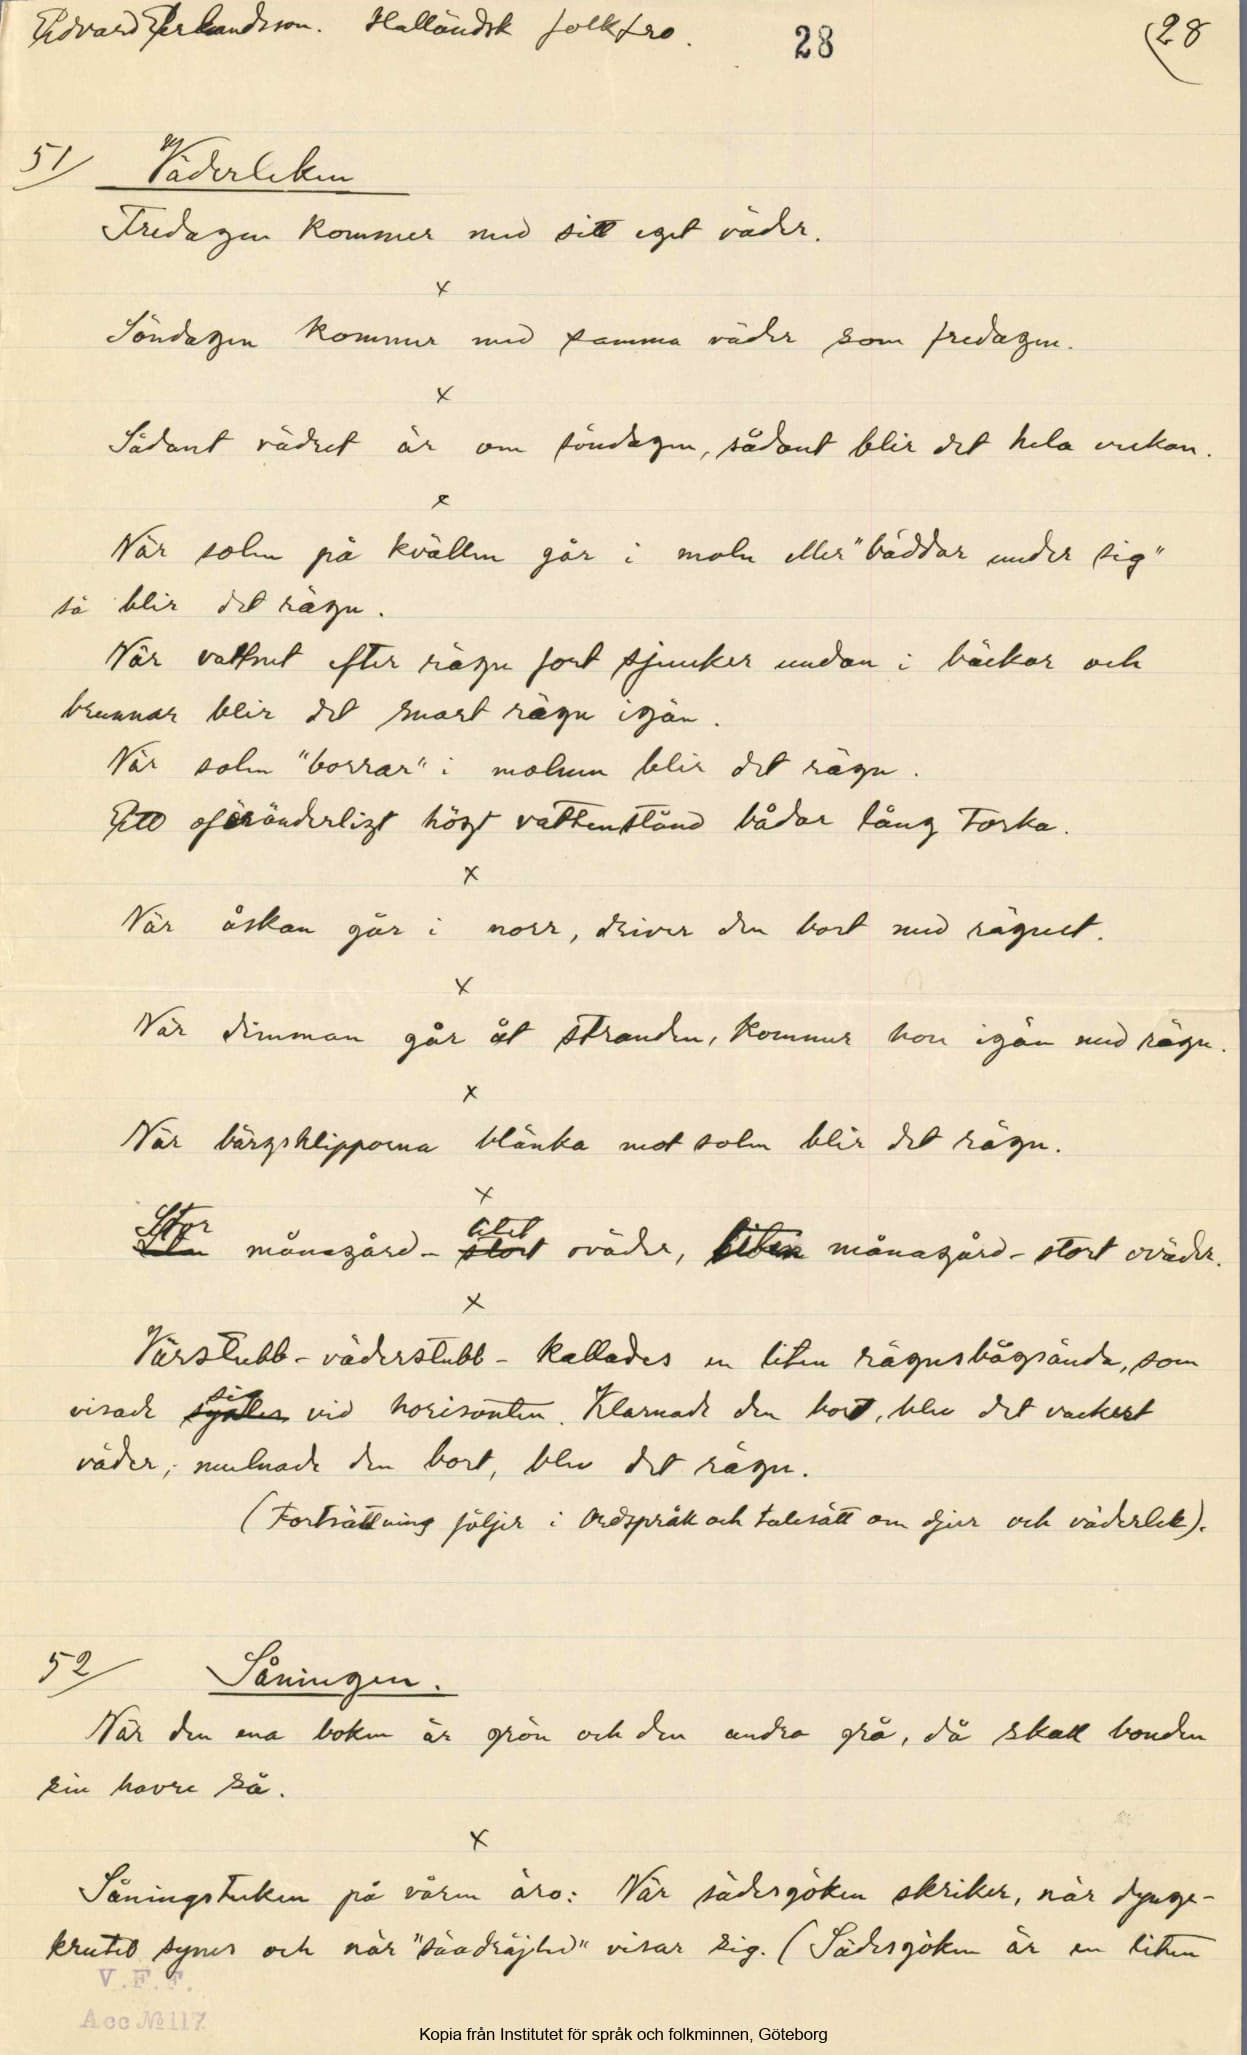 Edvard Erlandsson. Halländsk folktro.
28
28
51/ Väderleken
Fredagen kommer med sitt eget väder.
x
Söndagen kommer med samma väder som fredagen.
x
Sådant vädret är om söndagen, sådant blir det hela veckan.
x
När solen på kvällen går i moln eller "bäddar under sig"
så blir det rägn.
När vattnet efter rägn fort sjunker undan i bäckar och
brunnar blir det snart rägn igän.
När solen "borrar" i molnen blir det rägn.
Ett oföränderligt högt vattenstånd bådar lång torka.
x
När åskan går i norr, driver den bort med rägnet.
x
När dimman går åt stranden, kommer hon igän med rägn.
x
När bärgsklipporna blänka mot solen blir det rägn.
x
Stor månagård - litet oväder, liten månagård - stort oväder.
x
Värstubb - väderstubb - kallades en liten rägnsbågsända, som
visade sig vid horisonten. Klarnade den bort, blev det vackert
väder, mulnade den bort, blev det rägn.
(Fortsättning följer i Ordspråk och talesätt om djur och väderlek).
52/ Såningen.
När den ena boken är grön och den andra grå, då skall bonden
sin havre så.
x
Såningstecken på våren äro: När sädesgöken skriker, när dynge-
krutet synes och när "säadräjled" visar sig. (Sädesgöken är en liten
V.F.F.
Acc № 117
Kopia från Institutet för språk och folkminnen, Göteborg